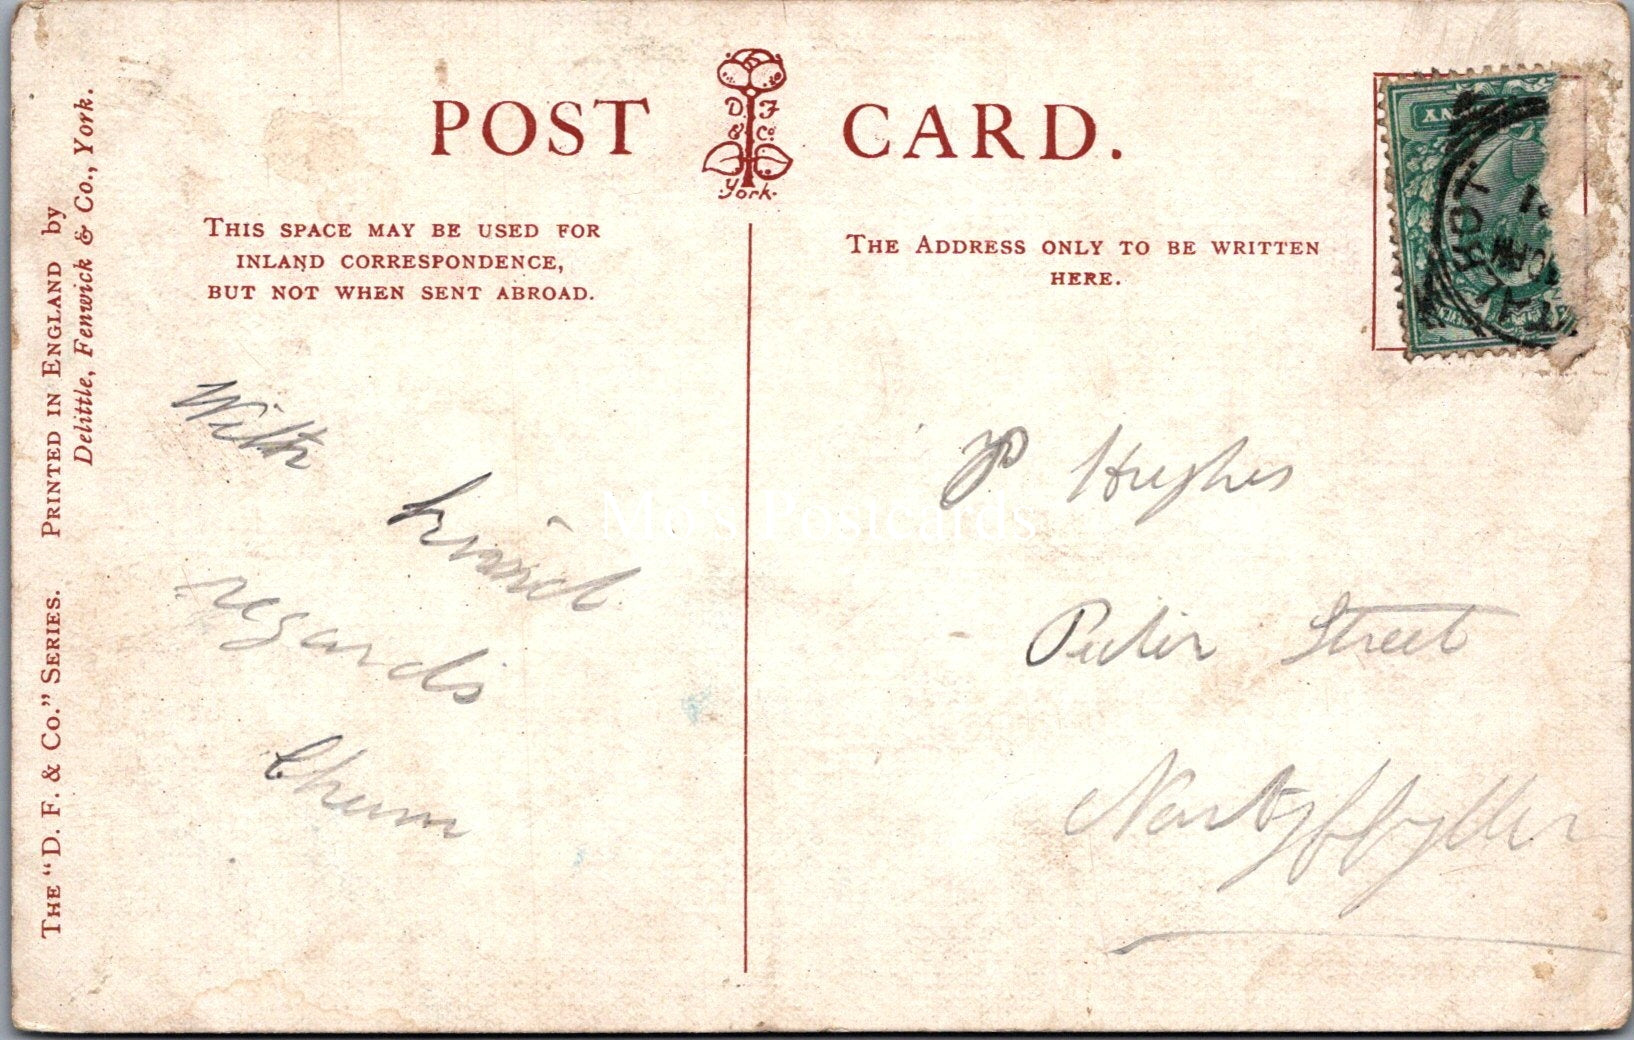 POST CARD.
D. F
& Co
York.
THIS SPACE MAY BE USED FOR
INLAND CORRESPONDENCE,
BUT NOT WHEN SENT ABROAD.
THE ADDRESS ONLY TO BE WRITTEN
HERE.
THE "D. F. & CO." SERIES. PRINTED IN ENGLAND by
Delittle, Fenwick & Co., York.
With
kind
regards
Chum
P Hughes
Peter Street
Nantyffyllon